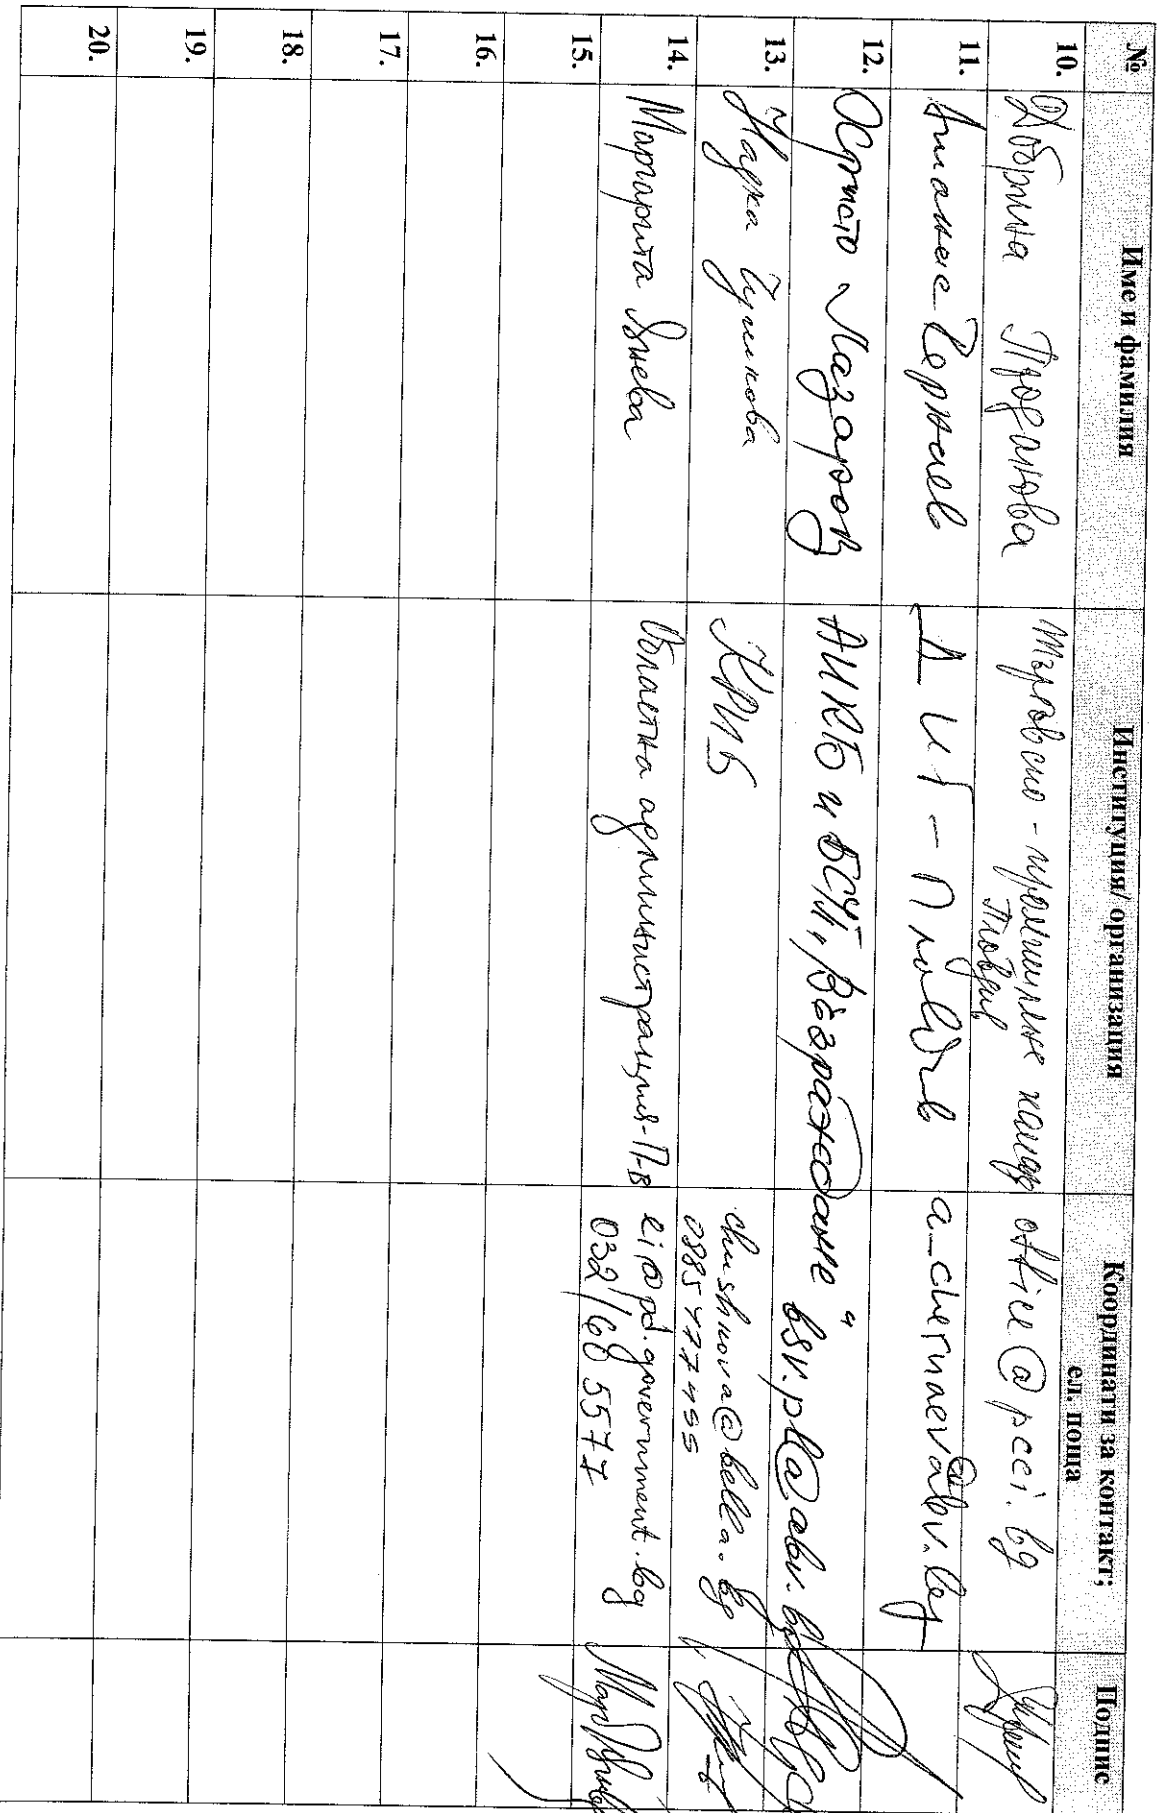 № Име и фамилия Институция/ организация Координати за контакт; ел. поща Подпис
10. Добрина Проданова Търговско - промишлена камара Пловдив office@pcci.bg
11. Атанас Чернаев ДИТ - Пловдив a_chernaev@abv.bg
12. Христо Лазаров АИКБ и БСЧП "Възраждане" bsv.pl@abv.bg
13. Чушкова КРИБ chushkova@bella.bg
14. Маргарита Янева Областна администрация-П-в ei@pd.government.bg
032/60 5577
15.
16.
17.
18.
19.
20.